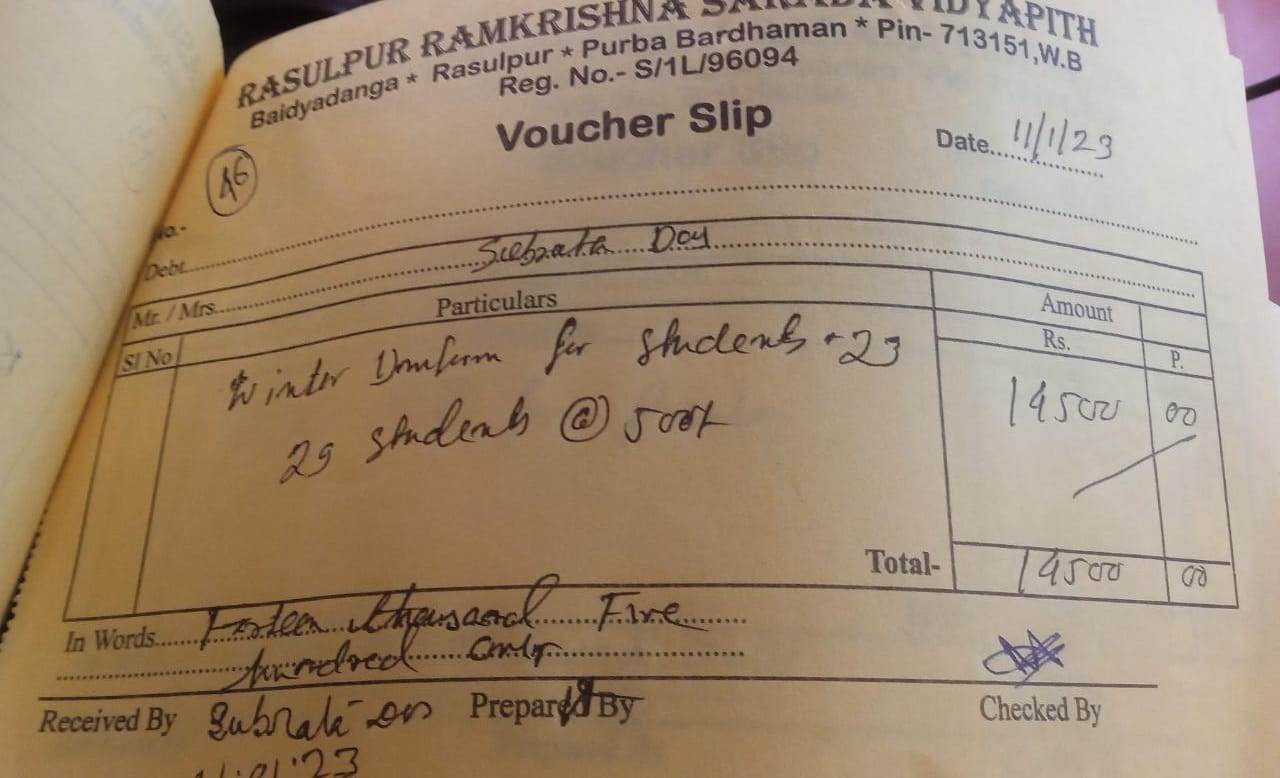 RASULPUR RAMKRISHNA SARADA VIDYAPITH
Baidyadanga * Rasulpur * Purba Bardhaman * Pin- 713151,W.B
Reg. No.- S/1L/96094
Voucher Slip
Date.....11/1/23
No.-
Debt
Mr. / Mrs. Subrata Dey
Sl No Particulars Amount
Rs. P.
Winter Uniform for Students - 29
29 Students @ 500/-
14500 00
Total- 14500 00
In Words....... Forteen thousand Five
hundred only
Received By Subrata Prepared By Checked By